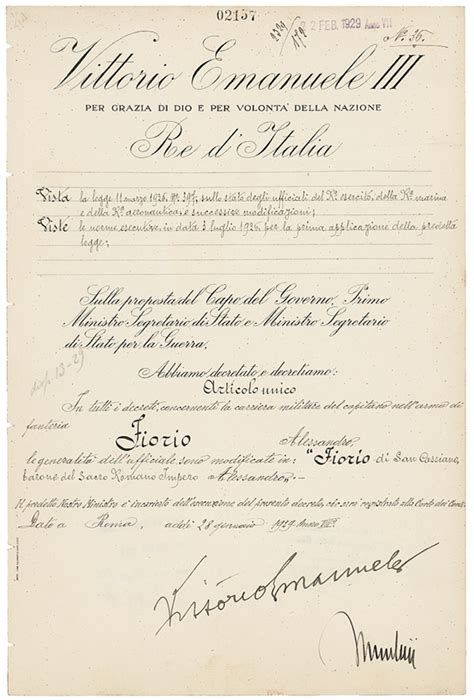 02157
2 FEB. 1929 Anno VII
N. 36.
Vittorio Emanuele III
PER GRAZIA DI DIO E PER VOLONTA' DELLA NAZIONE
Re d'Italia
Vista la legge 11 marzo 1926, N. 397, sullo stato degli ufficiali del R. esercito, della R. marina
e della R. aeronautica, e successive modificazioni;
Viste le norme esecutive, in data 3 luglio 1926, per la prima applicazione della predetta
legge;
Sulla proposta del Capo del Governo, Primo
Ministro Segretario di Stato e Ministro Segretario
di Stato per la Guerra.
disp. 13-29
Abbiamo decretato e decretiamo:
Articolo unico
In tutti i decreti, concernenti la carriera militare del capitano nell'arma di
fanteria
Fiorio Alessandro,
le generalità dell'ufficiale sono modificate in: "Fiorio di San Cassiano,
barone del Sacro Romano Impero Alessandro„.
Il predetto Nostro Ministro è incaricato dell'esecuzione del presente decreto, che sarà registrato alla Corte dei Conti.
Dato a Roma, addì 28 gennaio 1929. Anno VII°
Vittorio Emanuele
Mussolini